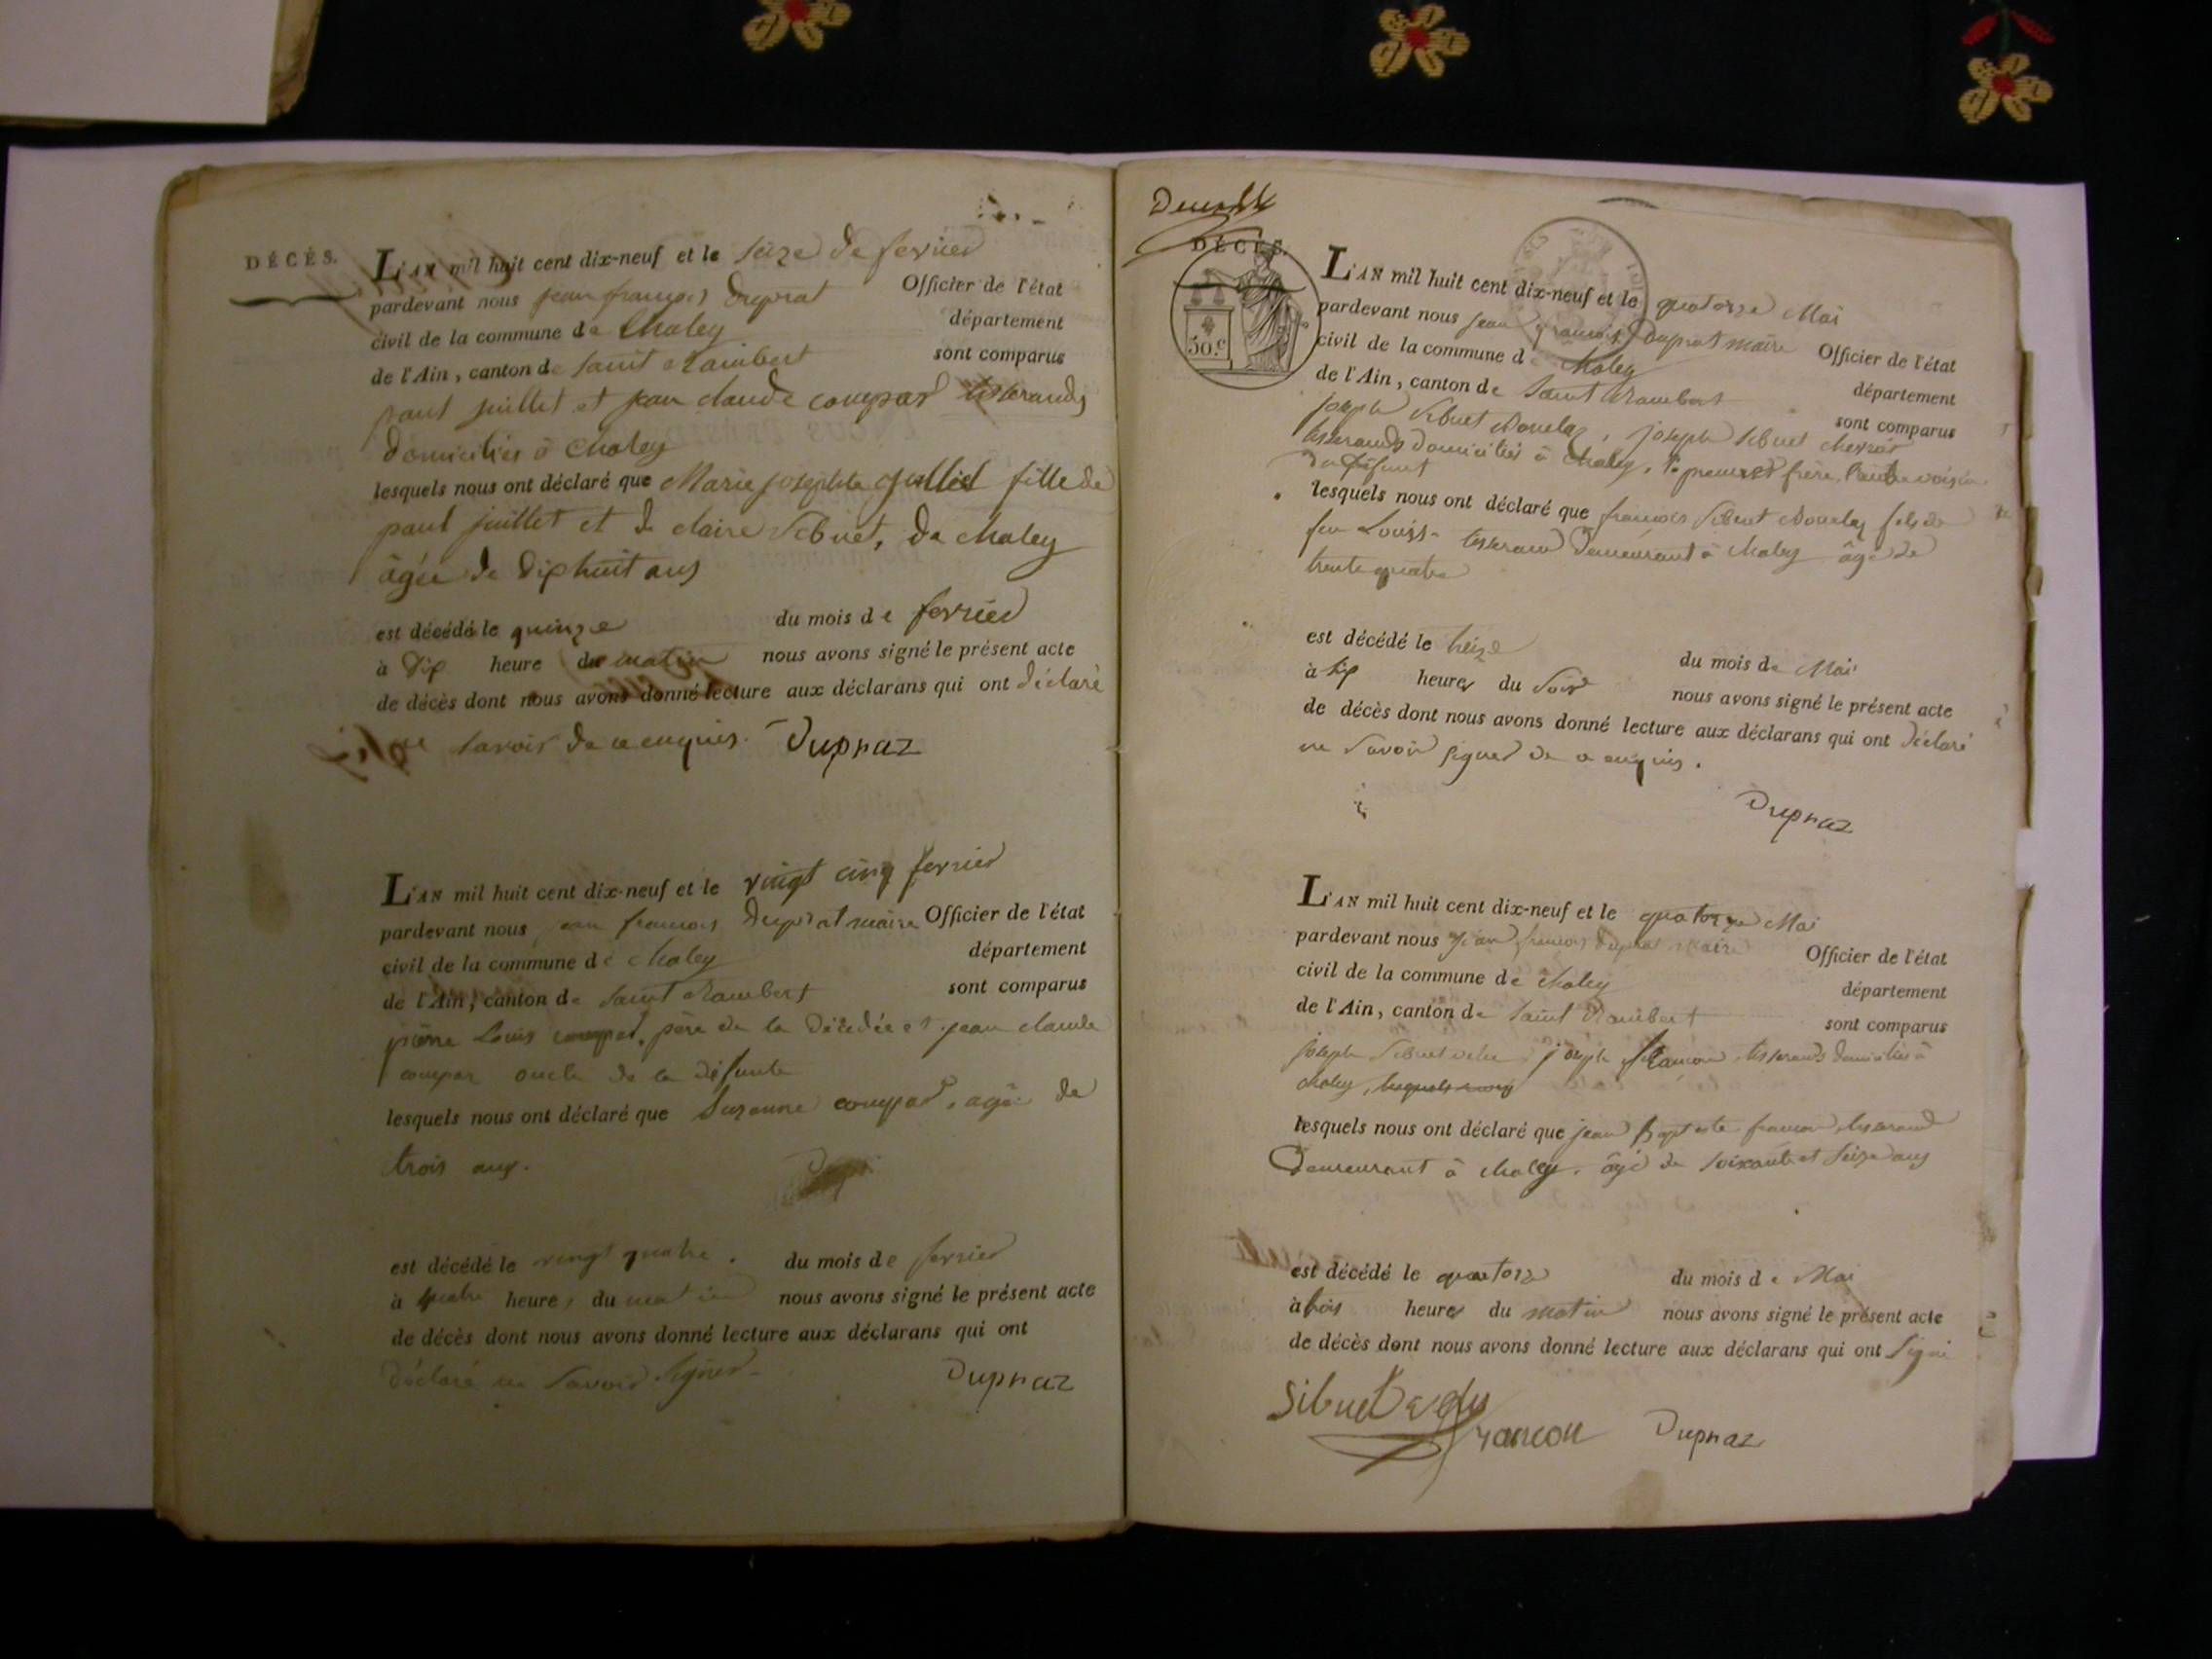 DÉCÈS.
L'AN mil huit cent dix-neuf et le seize de fevrier
pardevant nous jean françois Duprat Officier de l'état
civil de la commune de Chaley département
de l'Ain, canton de saint Rambert sont comparus
paul juillet et jean claude compar tisserands
domiciliés à chaley
lesquels nous ont déclaré que Marie josephte juillet fille de
paul juillet et de claire Sibuet, de chaley
âgée de dixhuit ans
est décédé le quinze du mois de fevrier
à dix heure du matin nous avons signé le présent acte
de décès dont nous avons donné lecture aux déclarans qui ont déclaré
ne savoir de ce enquis. Dupraz
L'AN mil huit cent dix-neuf et le vingt cinq fevrier
pardevant nous jean francois Duprat maire Officier de l'état
civil de la commune de chaley département
de l'Ain, canton de saint Rambert sont comparus
pierre Louis compar, père de la décédée et jean claude
compar oncle de la défunte
lesquels nous ont déclaré que Suzanne compar, agée de
trois ans.
est décédé le vingt quatre. du mois de fevrier
à quatre heures du matin nous avons signé le présent acte
de décès dont nous avons donné lecture aux déclarans qui ont
déclaré ne savoir signer Dupraz
DÉCÈS.
50.c
L'AN mil huit cent dix-neuf et le quatorze Mai
pardevant nous jean francois Duprat maire Officier de l'état
civil de la commune de chaley département
de l'Ain, canton de saint Rambert sont comparus
joseph Sibuet , joseph Sibuet
tisserands domiciliés à chaley, le premier frère, l'autre voisin
du défunt
lesquels nous ont déclaré que francois Sibuet fils de
feu Louis tisserand demeurant à chaley âgé de
trente quatre
est décédé le treize du mois de Mai
à six heures du soir nous avons signé le présent acte
de décès dont nous avons donné lecture aux déclarans qui ont déclaré
ne savoir signer de ce enquis.
Dupraz
L'AN mil huit cent dix-neuf et le quatorze Mai
pardevant nous jean francois Duprat maire Officier de l'état
civil de la commune de chaley département
de l'Ain, canton de saint Rambert sont comparus
joseph Sibuet joseph francon tisserands domiciliés à
chaley,
lesquels nous ont déclaré que jean Baptiste francon tisserand
demeurant à chaley, âgé de soixante et seize ans
est décédé le quatorze du mois de Mai
à trois heures du matin nous avons signé le présent acte
de décès dont nous avons donné lecture aux déclarans qui ont signé
Sibuet francon Dupraz